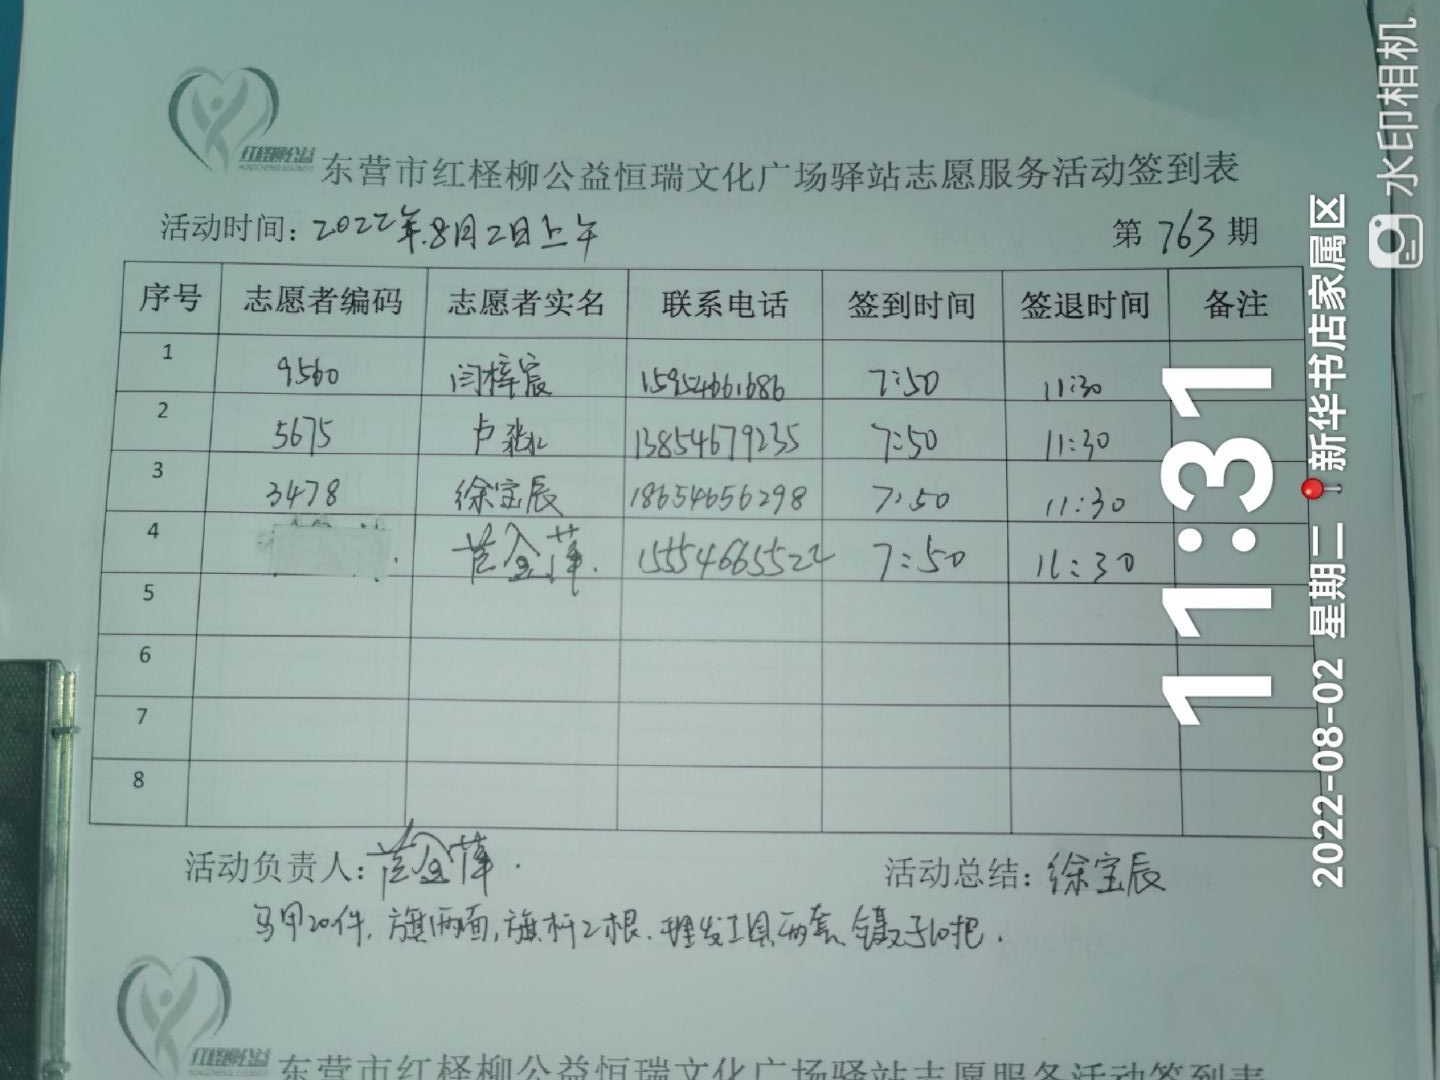 红柽柳公益
东营市红柽柳公益恒瑞文化广场驿站志愿服务活动签到表
活动时间：2022年8月2日上午 第763期
序号 志愿者编码 志愿者实名 联系电话 签到时间 签退时间 备注
1 9560 闫梓宸 15954661686 7:50 11:30
2 5675 卢 13854679235 7:50 11:30
3 3478 徐宝辰 18654656298 7:50 11:30
4 金萍 15554665522 7:50 11:30
5
6
7
8
活动负责人： 金萍 活动总结：徐宝辰
马甲20件，旗两面，旗杆2根，理发工具两套，镊子10把.
红柽柳公益
东营市红柽柳公益恒瑞文化广场驿站志愿服务活动签到表
水印相机
11:31
2022-08-02 星期二 新华书店家属区